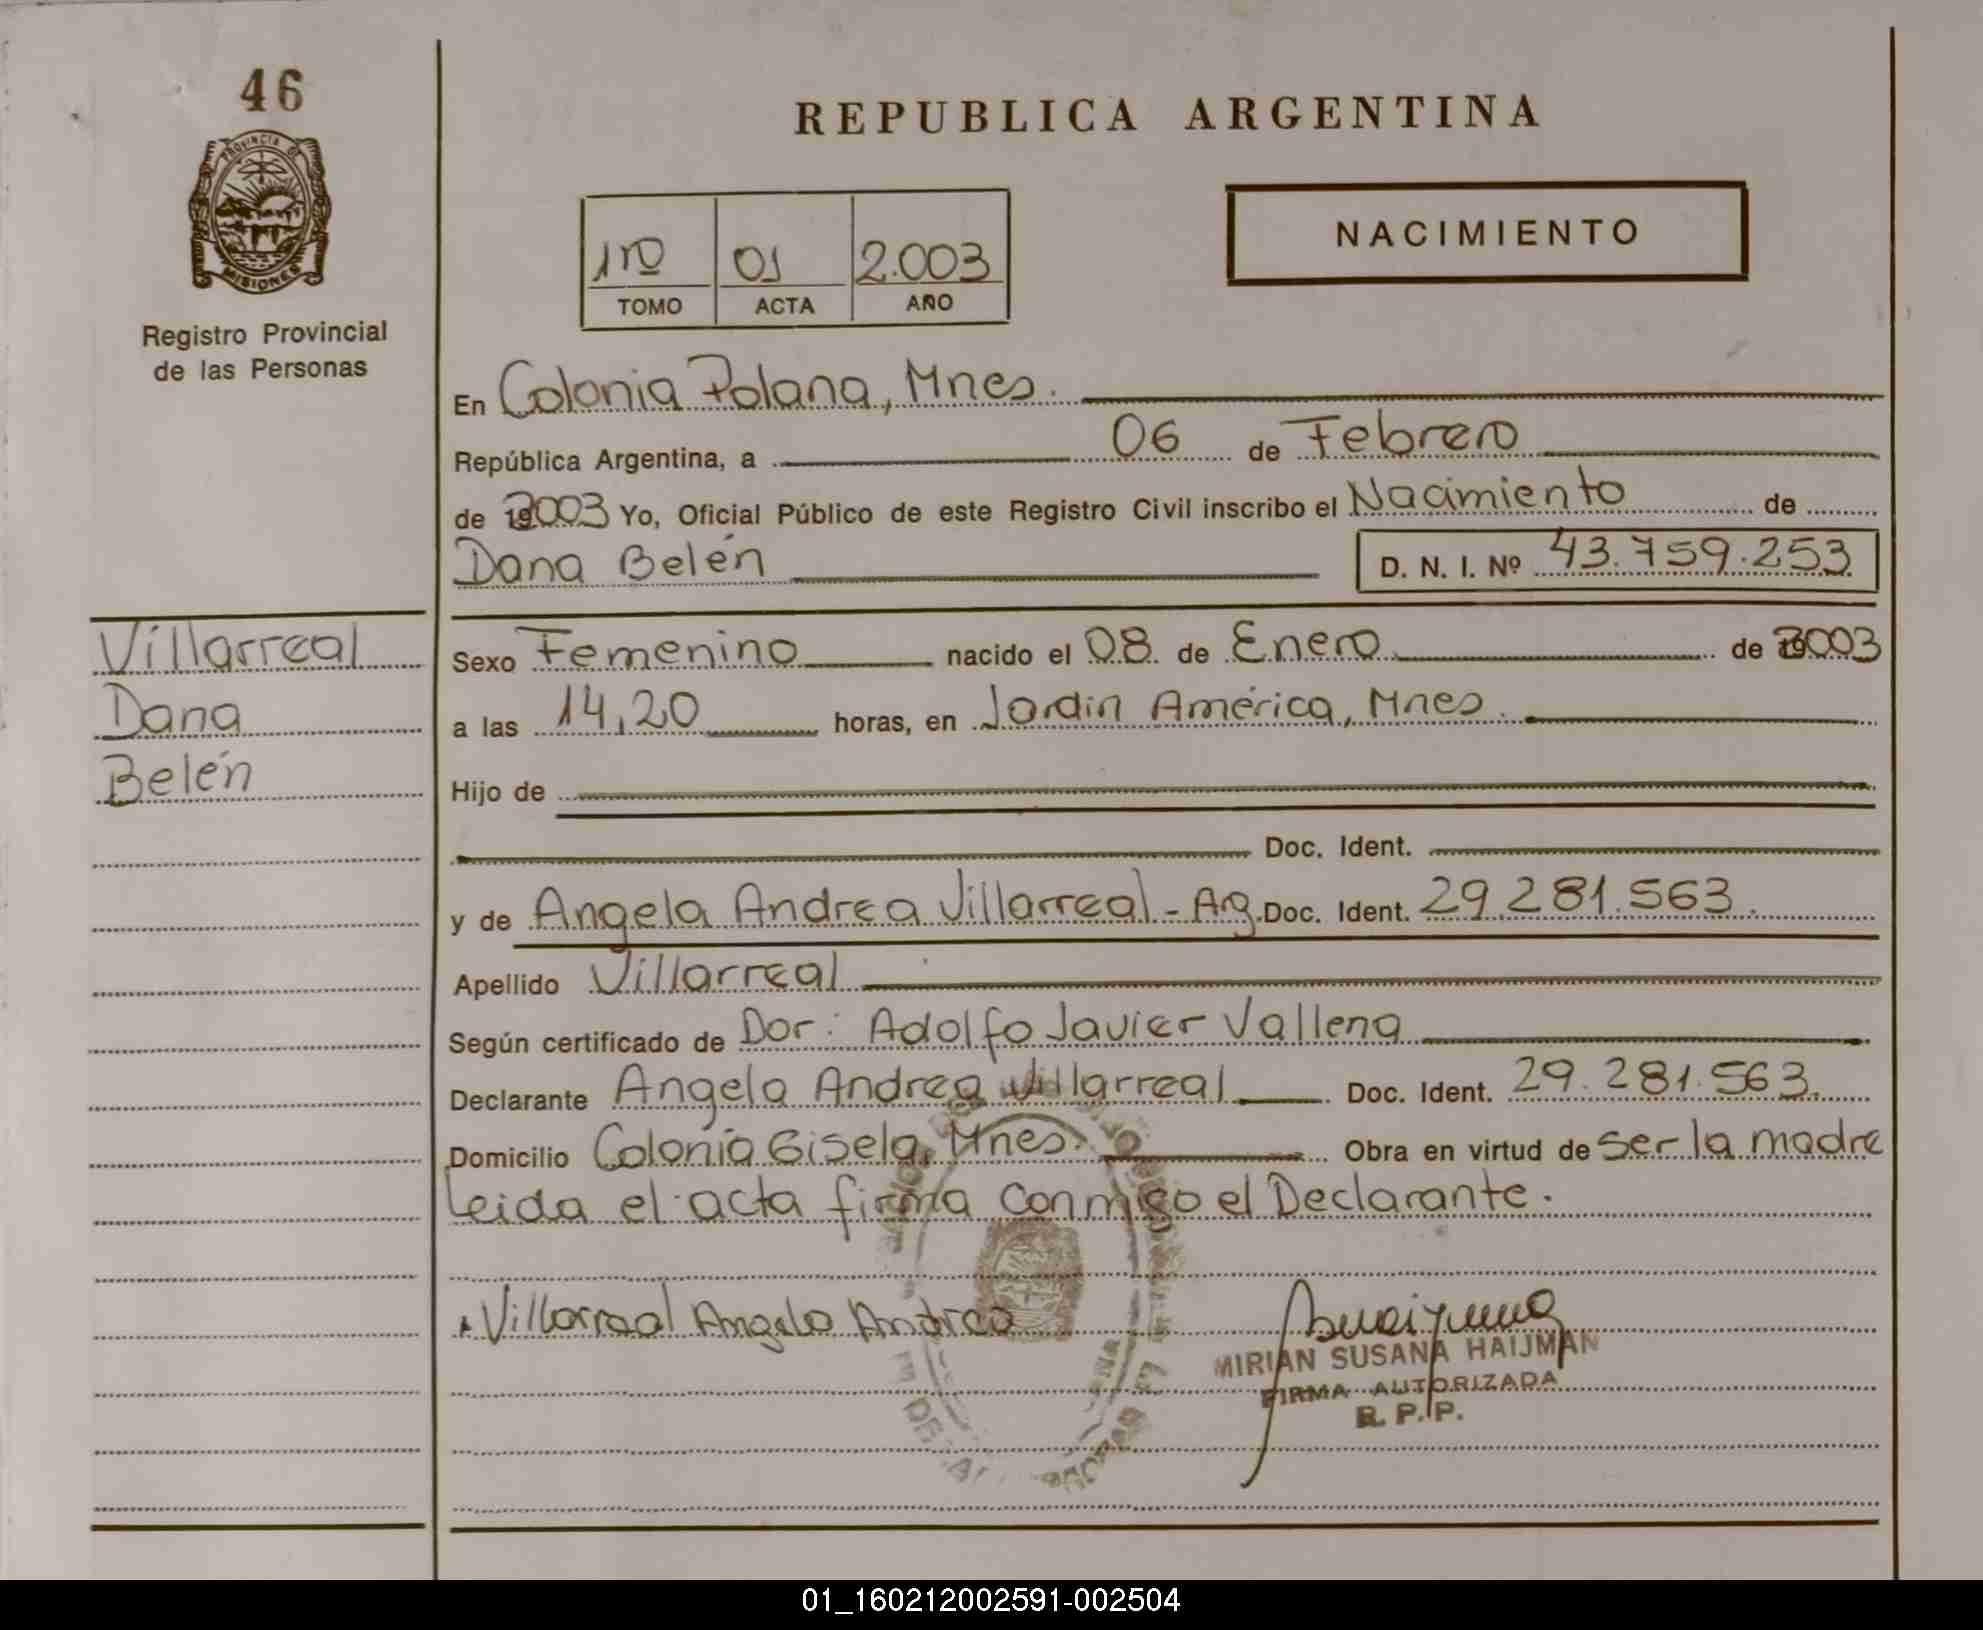 46
PROVINCIA DE
MISIONES
Registro Provincial
de las Personas
Villarreal
Dana
Belén
REPUBLICA ARGENTINA
1ro 01 2.003
TOMO ACTA AÑO
NACIMIENTO
En Colonia Polana, Mnes.
República Argentina, a 06 de Febrero
de 2003 Yo, Oficial Público de este Registro Civil inscribo el Nacimiento de
Dana Belén D. N. I. Nº 43.759.253
Sexo Femenino nacido el 08 de Enero de 2003
a las 14,20 horas, en Jardin América, Mnes.
Hijo de
Doc. Ident.
y de Angela Andrea Villarreal - Arg. Doc. Ident. 29.281.563.
Apellido Villarreal
Según certificado de Dor: Adolfo Javier Vallena
Declarante Angela Andrea Villarreal Doc. Ident. 29.281.563.
Domicilio Colonia Gisela, Mnes. Obra en virtud de ser la madre
Leida el acta firma conmigo el Declarante.
Villarreal Angela Andrea
MIRIAN SUSANA HAIJMAN
FIRMA AUTORIZADA
R. P. P.
01_160212002591-002504